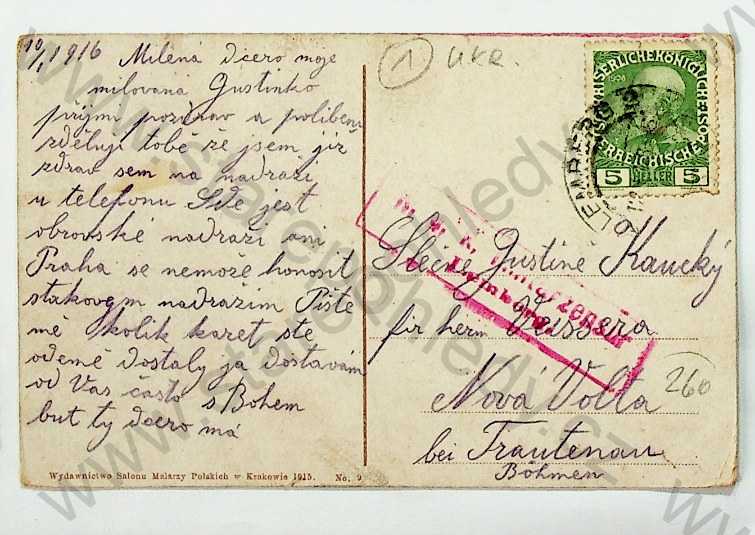 10/1 1916 Milená dcero moje
milovana Gustinko
přijmi pozdrav a polibení
zděluji tobě že jsem již
zdráv sem na nadraži
u telefonu Sde jest
obrovské nadraži ani
Praha se nemože honosit
stakovym nadražim Pište
mě kolik karet ste
odemě dostaly ja dostavám
od Vas často s Bohem
buť ty dcero má
Wydawnictwo Salonu Malarzy Polskich w Krakowie 1915. No. 9
1 UKR.
1908
KAISERLICHEKÖNIGLICHE
ÖSTERREICHISCHE
5 HELLER 5
LEMBERG
K. Militärzensur
Lemberg
Slečně Gustině Kaucký
fir herrn Veissera
Nová Volta
bei Trautenau
Böhmen
260
www.starepohledy.cz